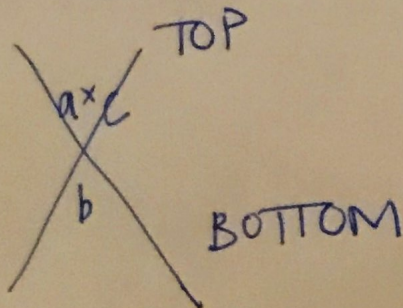 TOP
a × c
b
BOTTOM